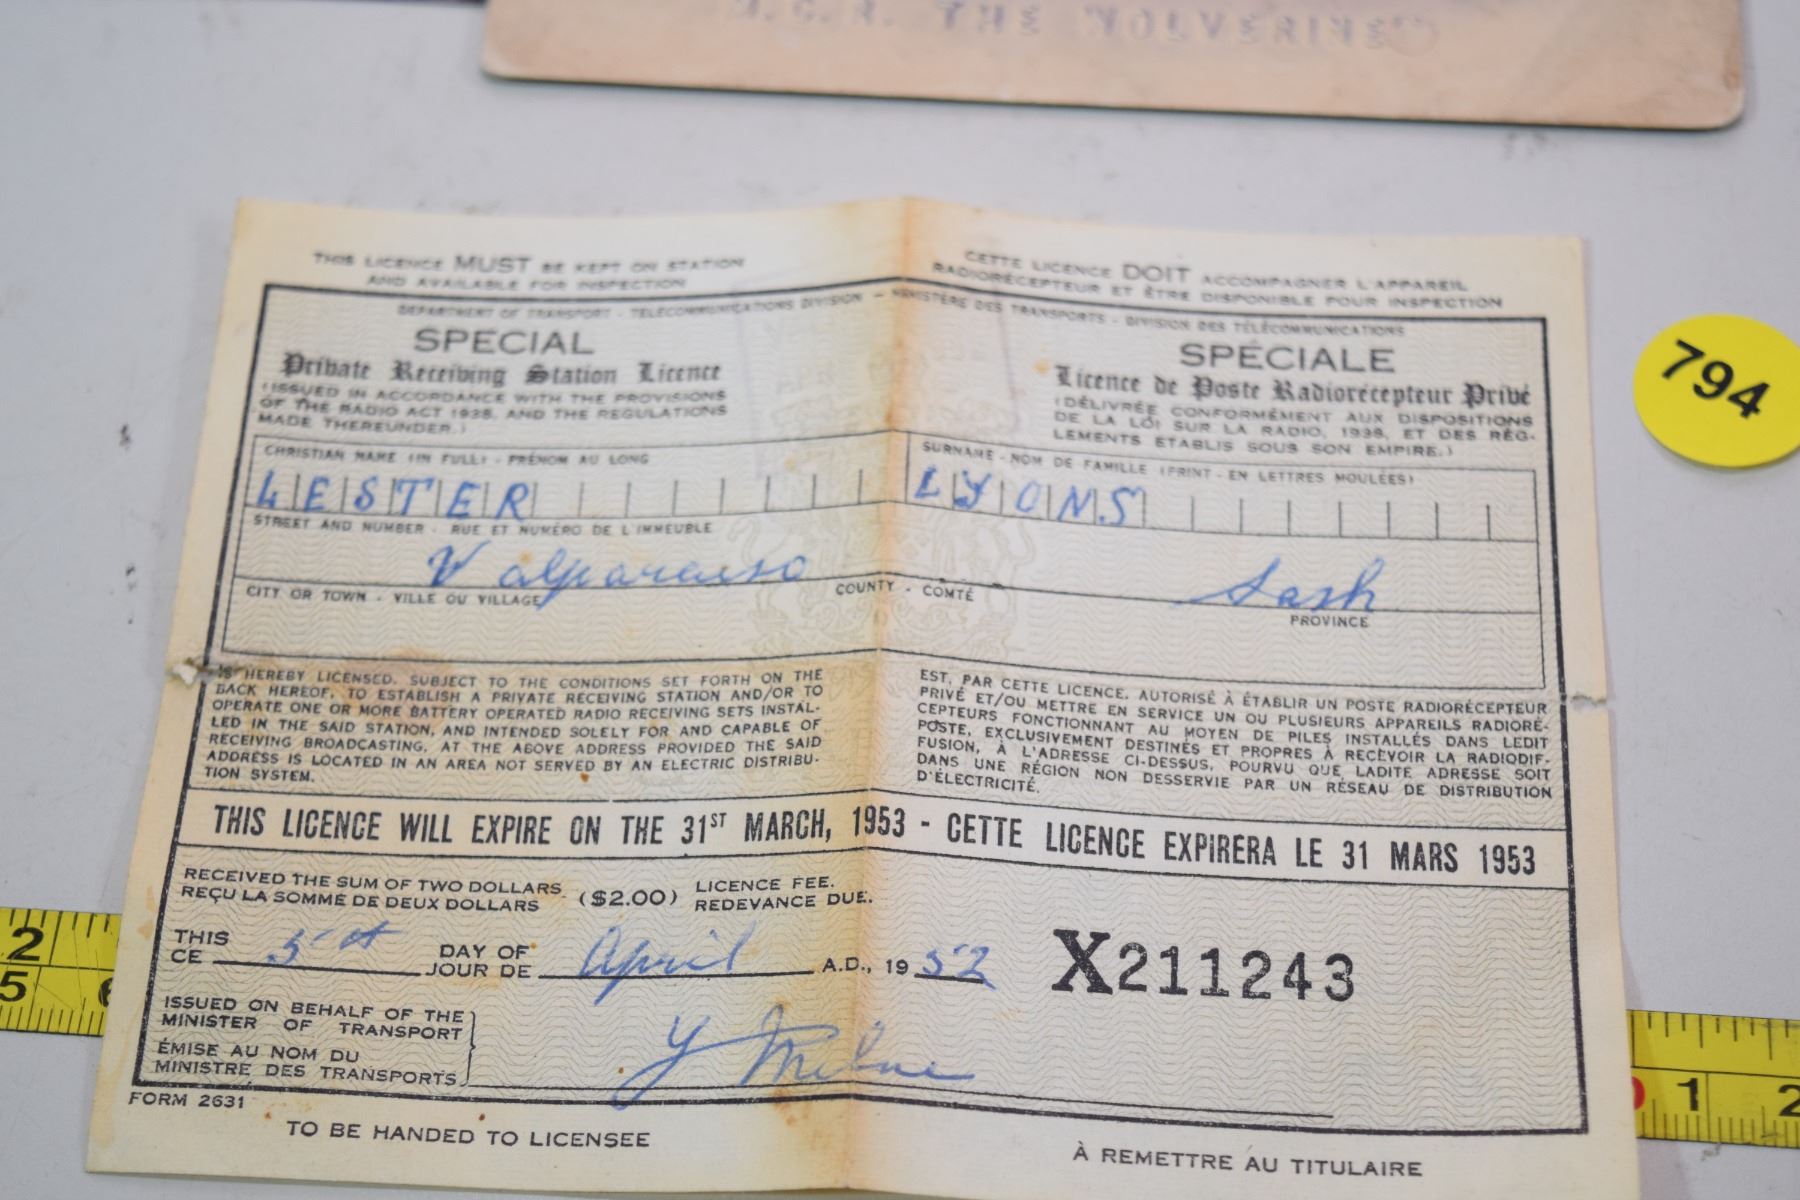 THE WOLVERINE"
THIS LICENCE MUST BE KEPT ON STATION
AND AVAILABLE FOR INSPECTION
CETTE LICENCE DOIT ACCOMPAGNER L'APPAREIL
RADIORÉCEPTEUR ET ÊTRE DISPONIBLE POUR INSPECTION
DEPARTMENT OF TRANSPORT - TELECOMMUNICATIONS DIVISION - MINISTÈRE DES TRANSPORTS - DIVISION DES TÉLÉCOMMUNICATIONS
SPECIAL
Private Receiving Station Licence
(ISSUED IN ACCORDANCE WITH THE PROVISIONS
OF THE RADIO ACT 1938, AND THE REGULATIONS
MADE THEREUNDER.)
SPÉCIALE
Licence de Poste Radiorécepteur Privé
(DÉLIVRÉE CONFORMÉMENT AUX DISPOSITIONS
DE LA LOI SUR LA RADIO, 1938, ET DES RÈG-
LEMENTS ÉTABLIS SOUS SON EMPIRE.)
CHRISTIAN NAME (IN FULL) - PRÉNOM AU LONG
LESTER
SURNAME - NOM DE FAMILLE (PRINT - EN LETTRES MOULÉES)
LYONS
STREET AND NUMBER - RUE ET NUMÉRO DE L'IMMEUBLE
Valparaiso Sash
CITY OR TOWN - VILLE OU VILLAGE COUNTY - COMTÉ PROVINCE
IS HEREBY LICENSED, SUBJECT TO THE CONDITIONS SET FORTH ON THE
BACK HEREOF, TO ESTABLISH A PRIVATE RECEIVING STATION AND/OR TO
OPERATE ONE OR MORE BATTERY OPERATED RADIO RECEIVING SETS INSTAL-
LED IN THE SAID STATION, AND INTENDED SOLELY FOR AND CAPABLE OF
RECEIVING BROADCASTING, AT THE ABOVE ADDRESS PROVIDED THE SAID
ADDRESS IS LOCATED IN AN AREA NOT SERVED BY AN ELECTRIC DISTRIBU-
TION SYSTEM.
EST, PAR CETTE LICENCE, AUTORISÉ À ÉTABLIR UN POSTE RADIORÉCEPTEUR
PRIVÉ ET/OU METTRE EN SERVICE UN OU PLUSIEURS APPAREILS RADIORÉ-
CEPTEURS FONCTIONNANT AU MOYEN DE PILES INSTALLÉS DANS LEDIT
POSTE, EXCLUSIVEMENT DESTINÉS ET PROPRES À RECEVOIR LA RADIODIF-
FUSION, À L'ADRESSE CI-DESSUS, POURVU QUE LADITE ADRESSE SOIT
DANS UNE RÉGION NON DESSERVIE PAR UN RÉSEAU DE DISTRIBUTION
D'ÉLECTRICITÉ.
THIS LICENCE WILL EXPIRE ON THE 31ST MARCH, 1953 - CETTE LICENCE EXPIRERA LE 31 MARS 1953
RECEIVED THE SUM OF TWO DOLLARS ($2.00) LICENCE FEE.
REÇU LA SOMME DE DEUX DOLLARS REDEVANCE DUE.
THIS DAY OF
CE JOUR DE April A.D., 19 52
X211243
ISSUED ON BEHALF OF THE
MINISTER OF TRANSPORT
ÉMISE AU NOM DU
MINISTRE DES TRANSPORTS
Milne
FORM 2631
TO BE HANDED TO LICENSEE
À REMETTRE AU TITULAIRE
794
2
5 6
1 2